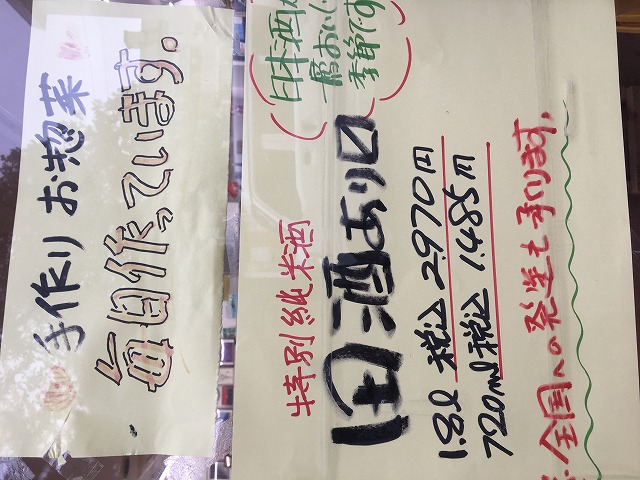 手作り お惣菜
毎日作っています。
日本酒が
季節です
特別純米酒
田酒あり口
1.8l 税込 2.970円
720ml 税込 1.485円
全国への発送も承ります。